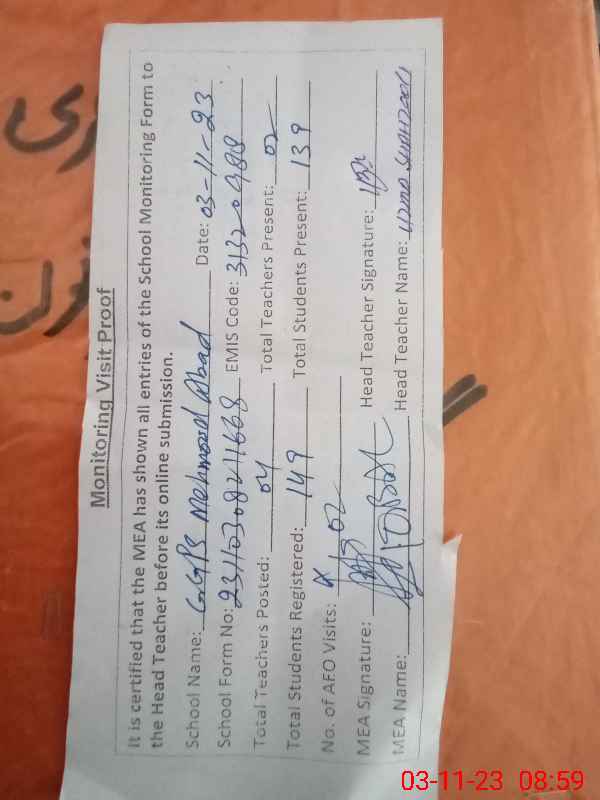 Monitoring Visit Proof
It is certified that the MEA has shown all entries of the School Monitoring Form to
the Head Teacher before its online submission.
School Name: GGPS Mehmood Abad Date: 03-11-23
School Form No: EMIS Code:
Total Teachers Posted: 04 Total Teachers Present: 02
Total Students Registered: 149 Total Students Present: 139
No. of AFO Visits: 02
MEA Signature: Head Teacher Signature:
MEA Name: Head Teacher Name:
03-11-23 08:59